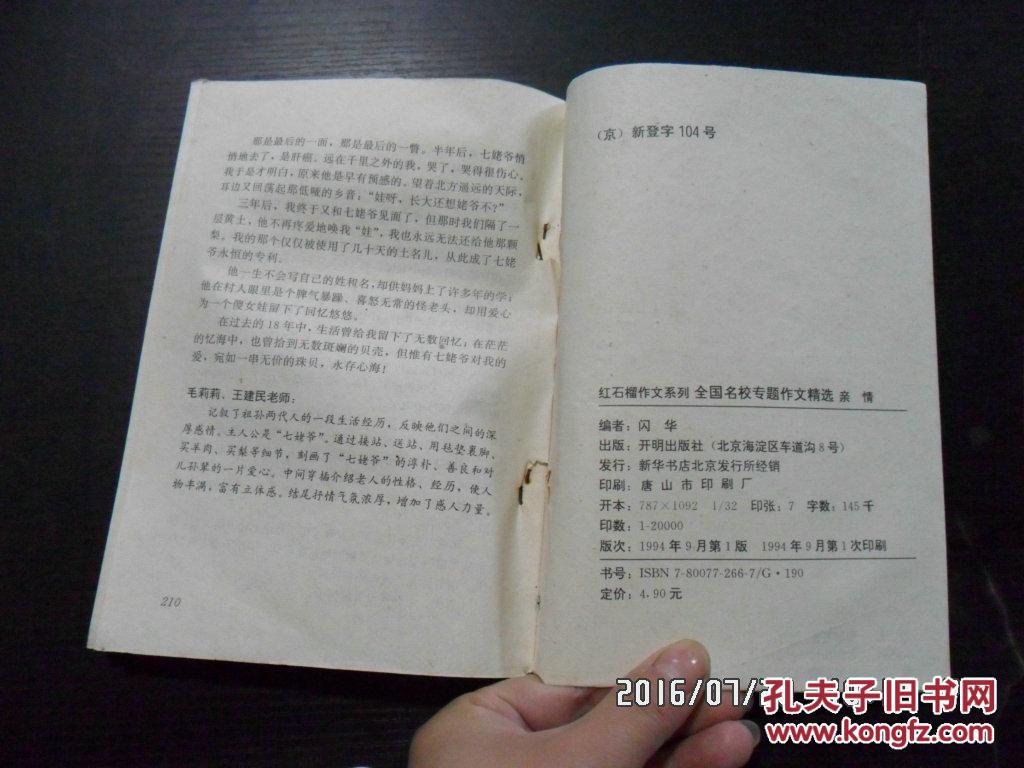 那是最后的一面，那是最后的一瞥。半年后，七姥爷悄
悄地去了，是肝癌。远在千里之外的我，哭了，哭得很伤心。
我于是才明白，原来他是早有预感的。望着北方遥远的天际，
耳边又回荡起那低哑的乡音：“娃呀，长大还想姥爷不？”
三年后，我终于又和七姥爷见面了，但那时我们隔了一
层黄土，他不再疼爱地唤我“娃”，我也永远无法还给他那颗
梨。我的那个仅仅被使用了几十天的土名儿，从此成了七姥
爷永恒的专利。
他一生不会写自己的姓和名，却供妈妈上了许多年的学；
他在村人眼里是个脾气暴躁、喜怒无常的怪老头，却用爱心
为一个傻女娃留下了回忆悠悠。
在过去的18年中，生活曾给我留下了无数回忆；在茫茫
的忆海中，也曾拾到无数斑斓的贝壳，但惟有七姥爷对我的
爱，宛如一串无价的珠贝，永存心海！
毛莉莉、王建民老师：
记叙了祖孙两代人的一段生活经历，反映他们之间的深
厚感情。主人公是“七姥爷”。通过接站、送站、用毡垫裹脚、
买羊肉、买梨等细节，刻画了“七姥爷”的淳朴、善良和对
儿孙辈的一片爱心。中间穿插介绍老人的性格、经历，使人
物丰满，富有立体感。结尾抒情气氛浓厚，增加了感人力量。
210
（京）新登字104号
红石榴作文系列 全国名校专题作文精选 亲 情
编者：闪 华
出版：开明出版社（北京海淀区车道沟8号）
发行：新华书店北京发行所经销
印刷：唐山市印刷厂
开本：787×1092 1/32 印张：7 字数：145千
印数：1-20000
版次：1994年9月第1版 1994年9月第1次印刷
书号：ISBN 7-80077-266-7/G·190
定价：4.90元
2016/07/
孔夫子旧书网
www.kongfz.com